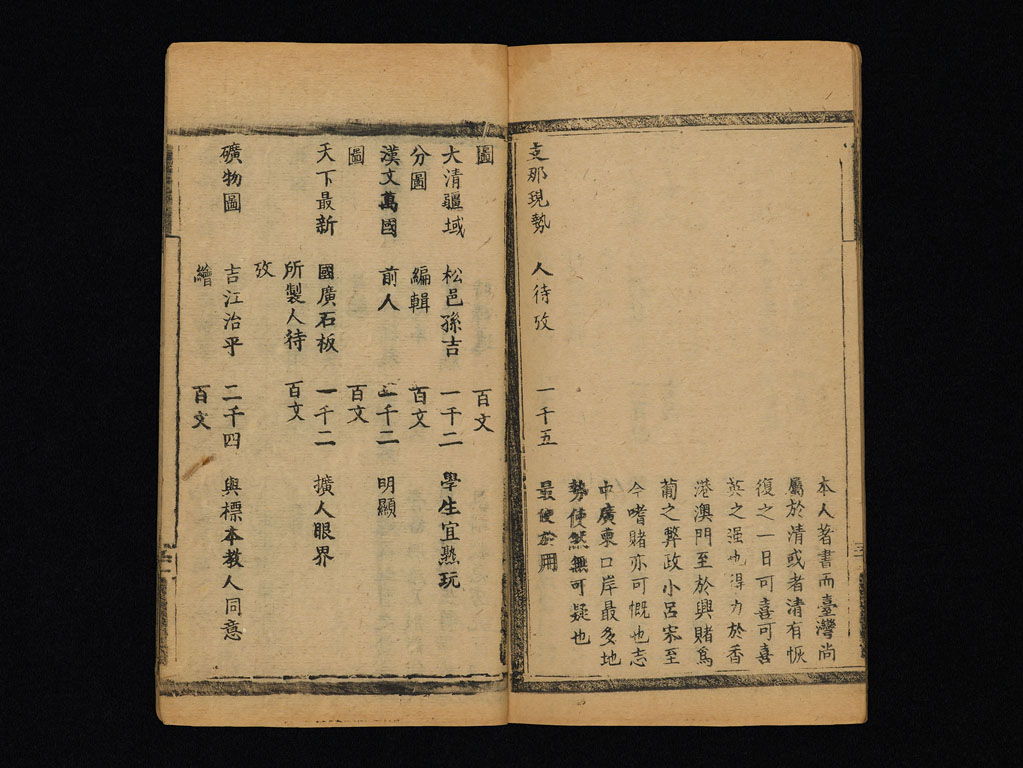 本人著書而臺灣尚
屬於清或者清有恢
復之一日可喜可喜
英之强也得力於香
港澳門至於興賭爲
葡之弊政小呂宋至
今嗜賭亦可慨也志
中廣東口岸最多地
勢使然無可疑也
支那現勢 人待攷 一千五 最便於用
圖 百文
大清疆域 松邑孫吉 一千二 學生宜熟玩
分圖 編輯 百文
漢文萬國 前人 二千二 明顯
圖 百文
天下最新 國廣石板 一千二 擴人眼界
所製人待 百文
攷
礦物圖 吉江治平 二千四 與標本教人同意
繪 百文